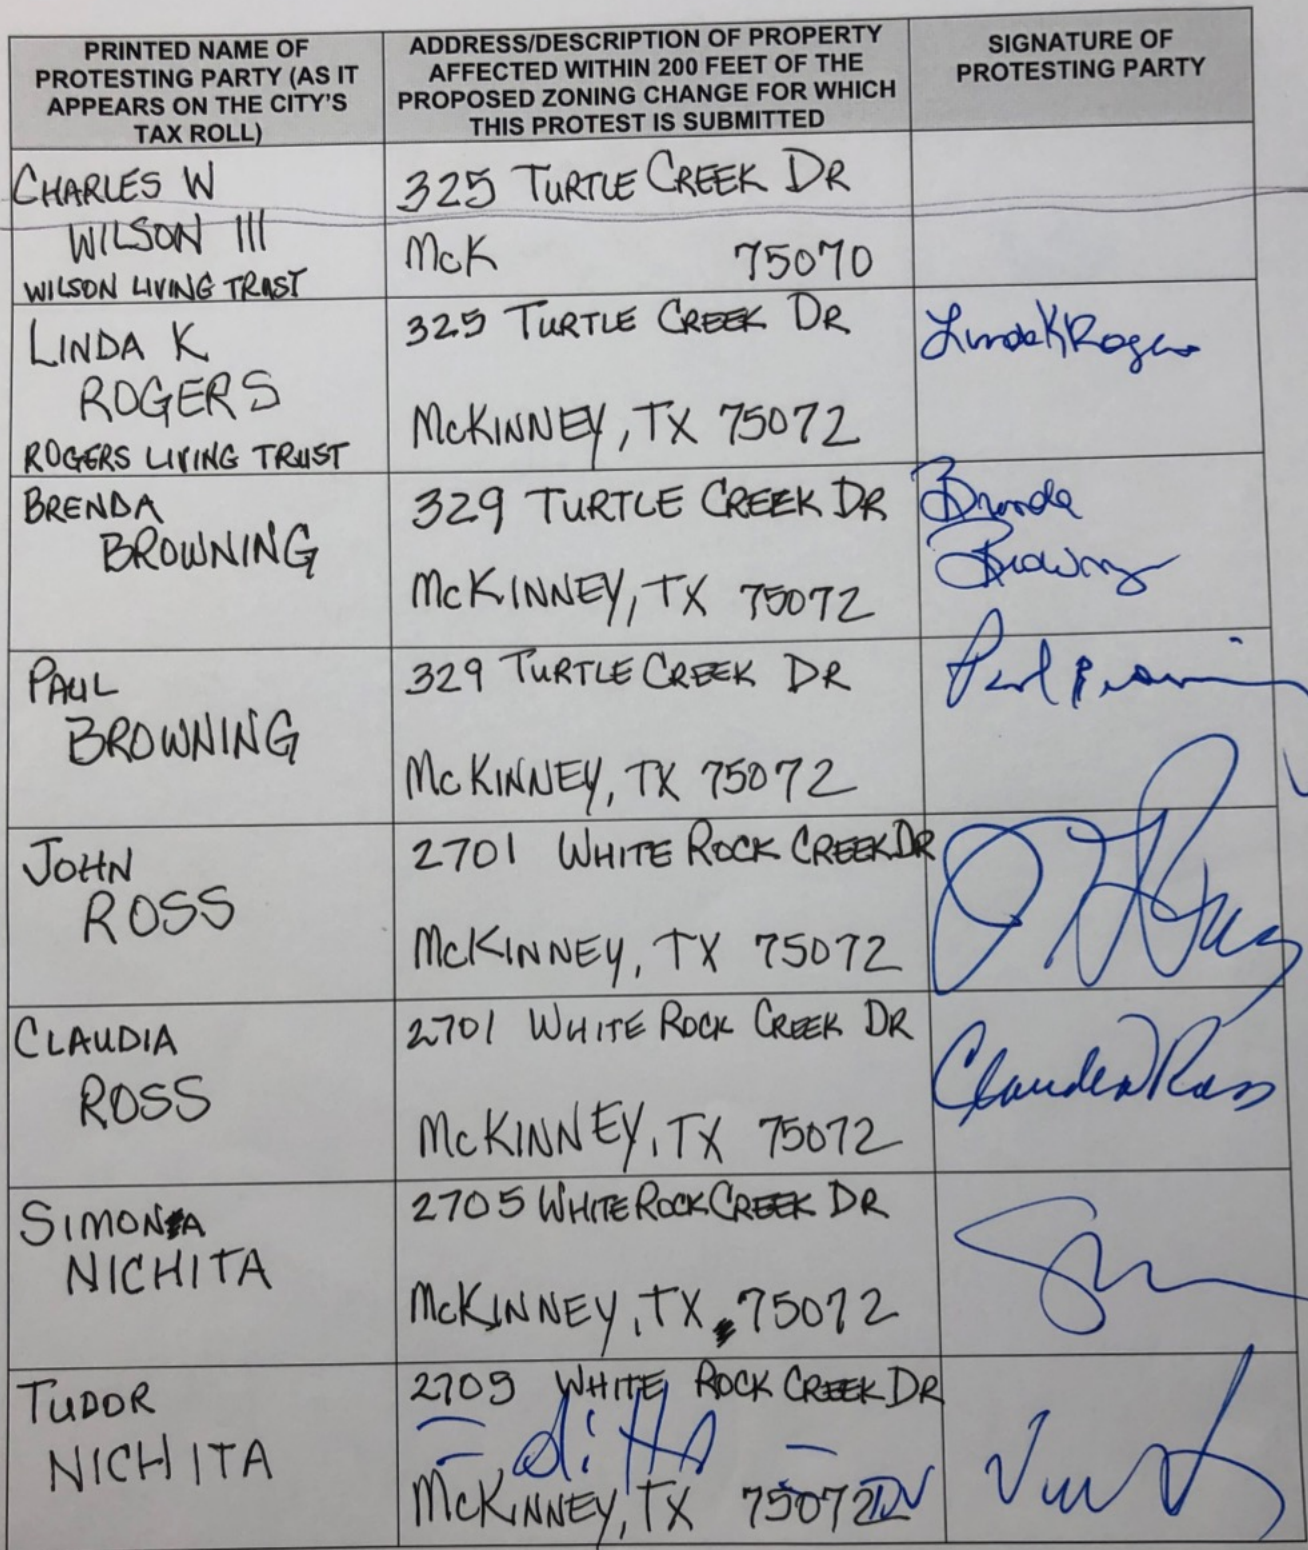 PRINTED NAME OF
PROTESTING PARTY (AS IT
APPEARS ON THE CITY'S
TAX ROLL)
ADDRESS/DESCRIPTION OF PROPERTY
AFFECTED WITHIN 200 FEET OF THE
PROPOSED ZONING CHANGE FOR WHICH
THIS PROTEST IS SUBMITTED
SIGNATURE OF
PROTESTING PARTY
CHARLES W
WILSON III
WILSON LIVING TRUST
325 TURTLE CREEK DR
McK 75070
LINDA K
ROGERS
ROGERS LIVING TRUST
325 TURTLE CREEK DR
McKINNEY, TX 75072
Linda K Rogers
BRENDA
BROWNING
329 TURTLE CREEK DR
McKINNEY, TX 75072
Brenda
Browning
PAUL
BROWNING
329 TURTLE CREEK DR
McKINNEY, TX 75072
Paul Browning
JOHN
ROSS
2701 WHITE ROCK CREEK DR
McKINNEY, TX 75072
CLAUDIA
ROSS
2701 WHITE ROCK CREEK DR
McKINNEY, TX 75072
Claudia Ross
SIMONA
NICHITA
2705 WHITE ROCK CREEK DR
McKINNEY, TX 75072
TUDOR
NICHITA
2705 WHITE ROCK CREEK DR
ditto
McKINNEY, TX 75072